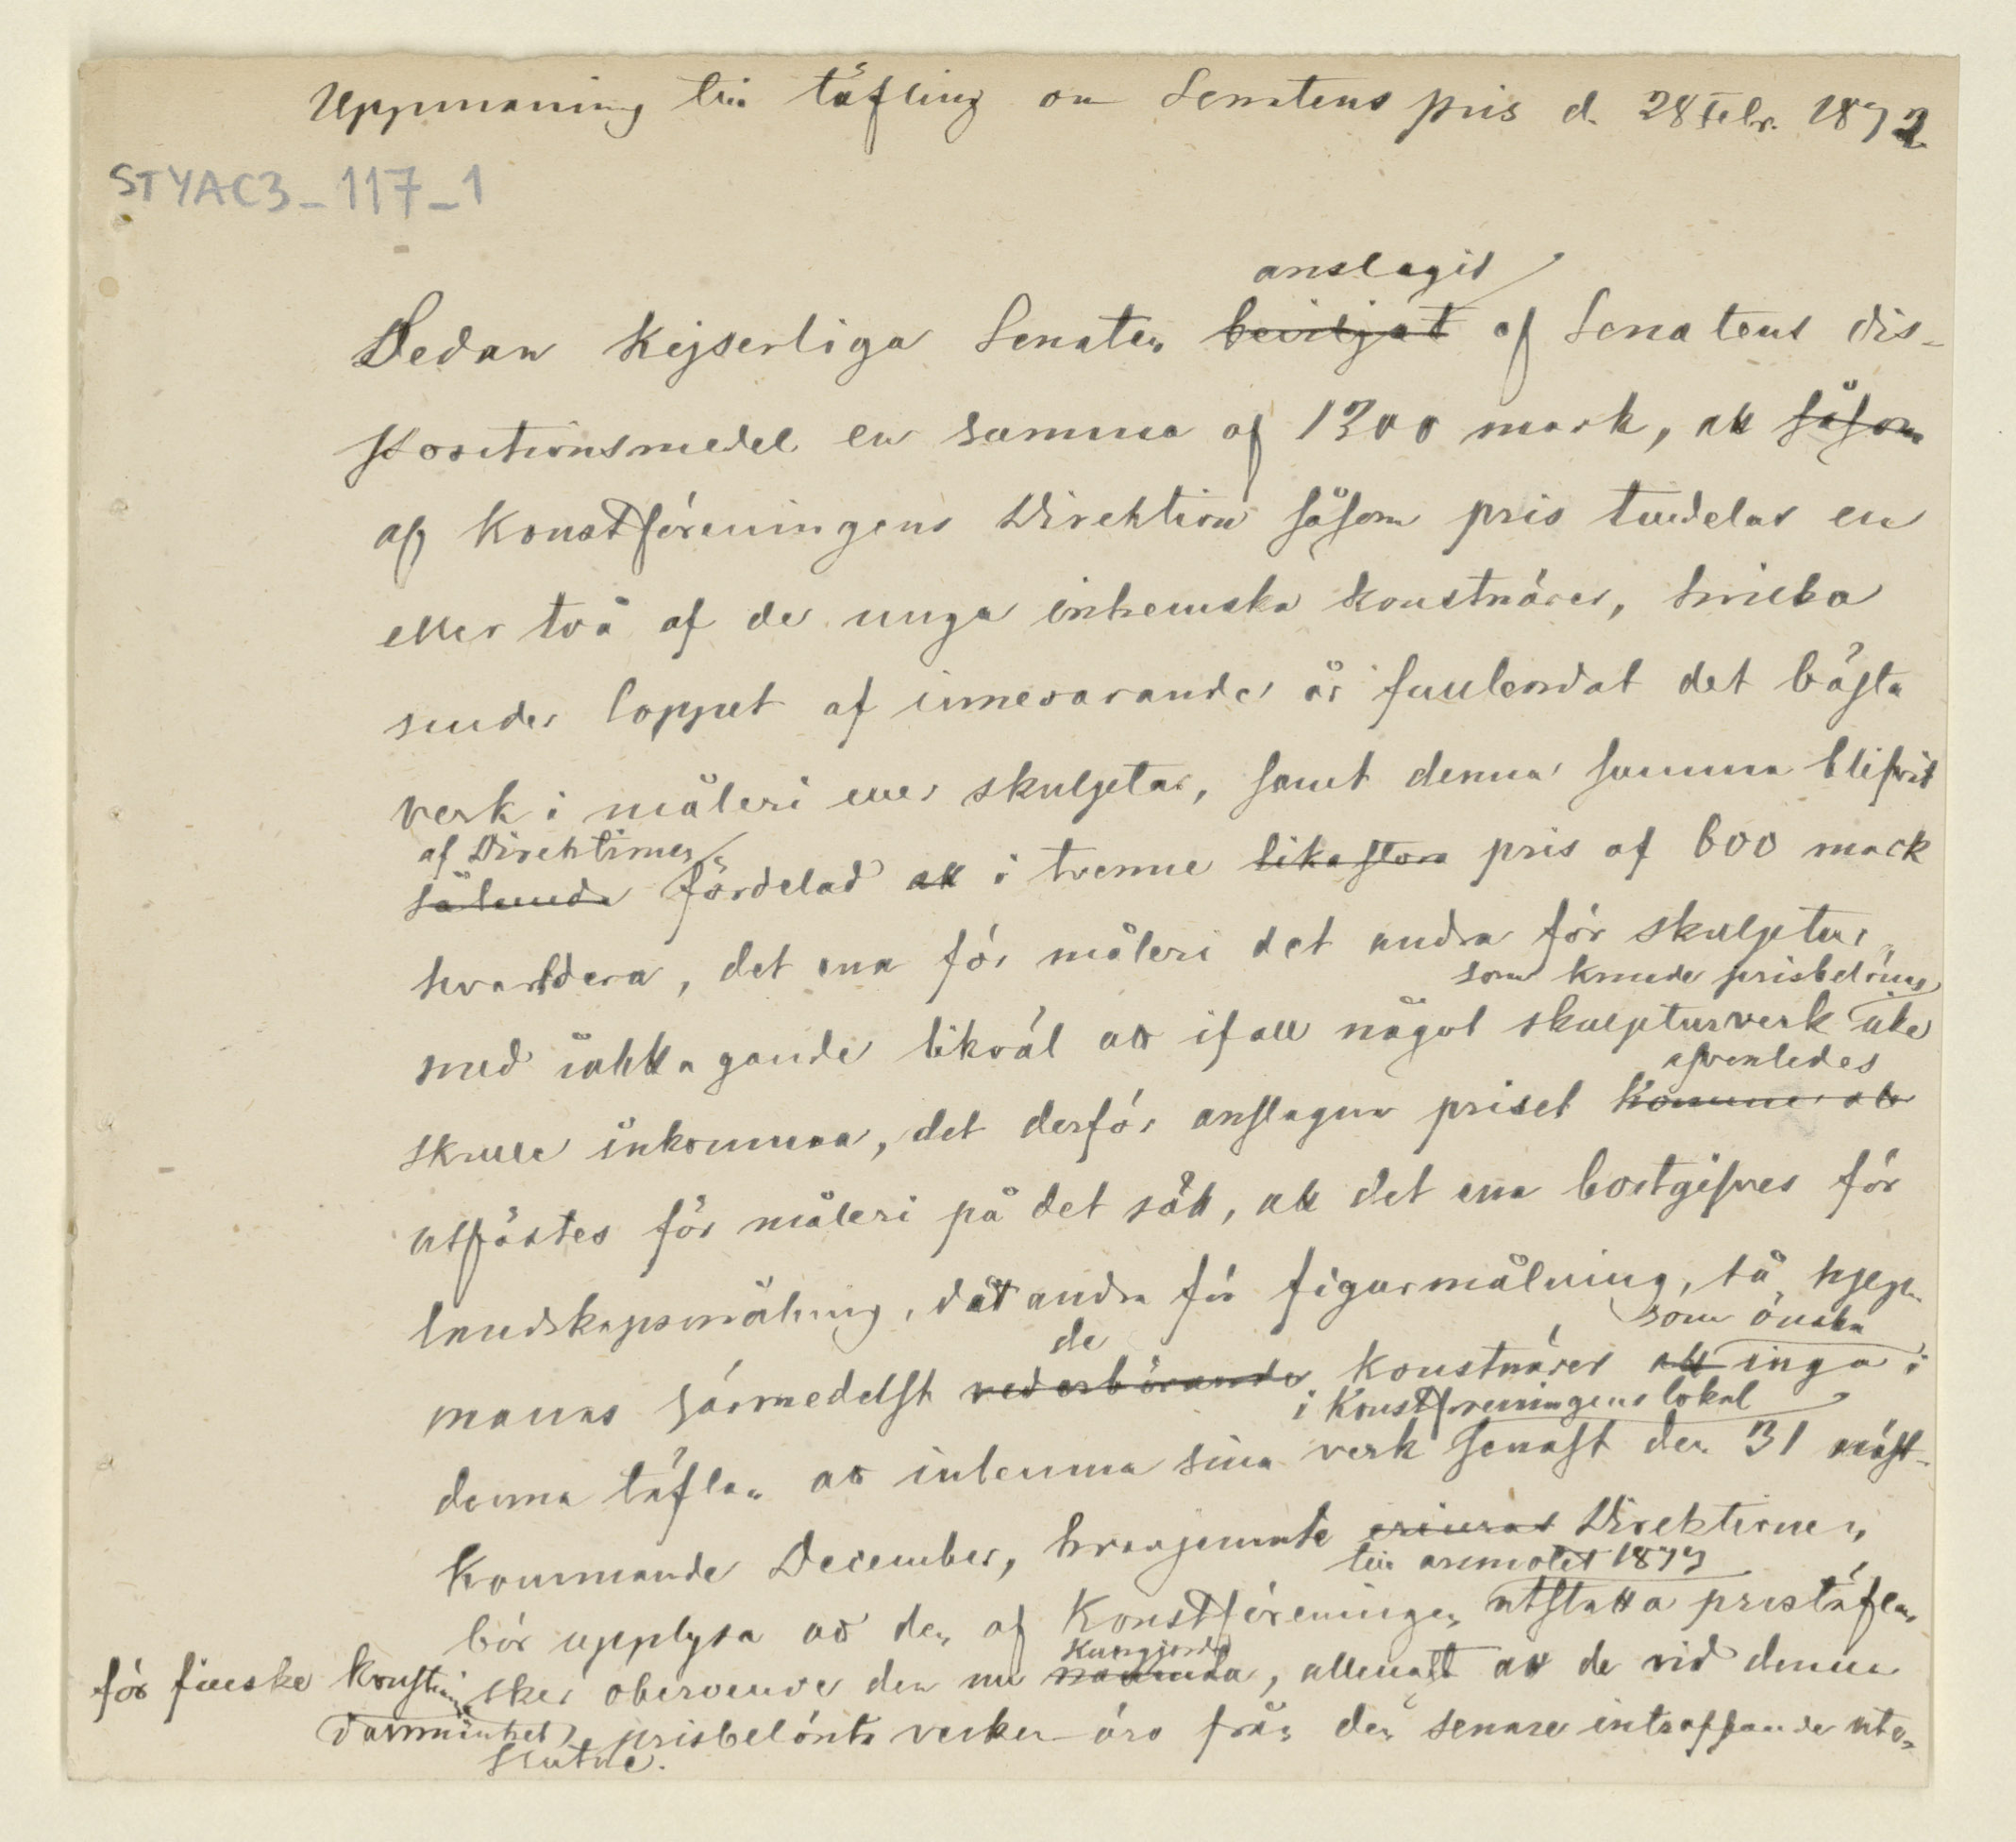 Uppmaning till täfling om Senatens pris d. 28 Febr. 1872
STYAC3_117_1
anslagit
Sedan Kejserliga Senaten beviljat af Senatens dis-
positionsmedel en summa af 1200 mark, att såsom
af Konstföreningens Direktion såsom pris tilldelas en
eller två af de unga inhemska konstnärer, hvilka
under loppet af innevarande år fullendat det bästa
verk i måleri eller skulptur, samt denna summa blifvit
af Direktionen
sålunda fördelad att i tvenne lika stora pris af 600 mark
hvardera, det ena för måleri det andra för skulptur,
som kunde prisbelönas
med iakttagande likväl att ifall något skulpturverk icke
afvenledes
skulle inkomma, det derför anslagna priset komme att
utfästes för måleri på det sätt, att det ena bortgifves för
landskapsmålning, det andra för figurmålning, så upp-
som önska
de
manas härmedelst vederbörande konstnärer att inga i
i Konstföreningens lokal
denna täflan att inlemna sina verk senast den 31 näst-
kommande December, hvarjemte Direktionen
till årsmötet 1873
bör upplysa att den af Konstföreningen utsatta pristäflan
kungjorda
för finske konstnärer sker oberoende den nu nämnda, allenast att de vid denna
prisbelönta verken äro från den senare inträffande ute-
slutne.